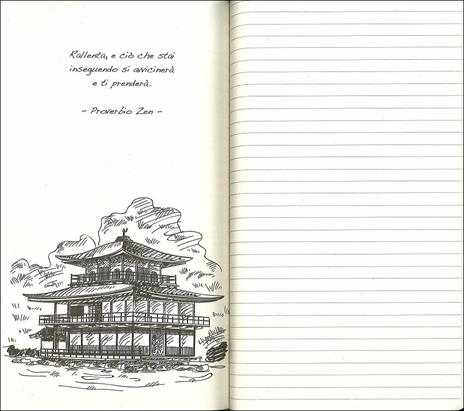 Rallenta, e ciò che stai
inseguendo si avvicinerà
e ti prenderà.
- Proverbio Zen -